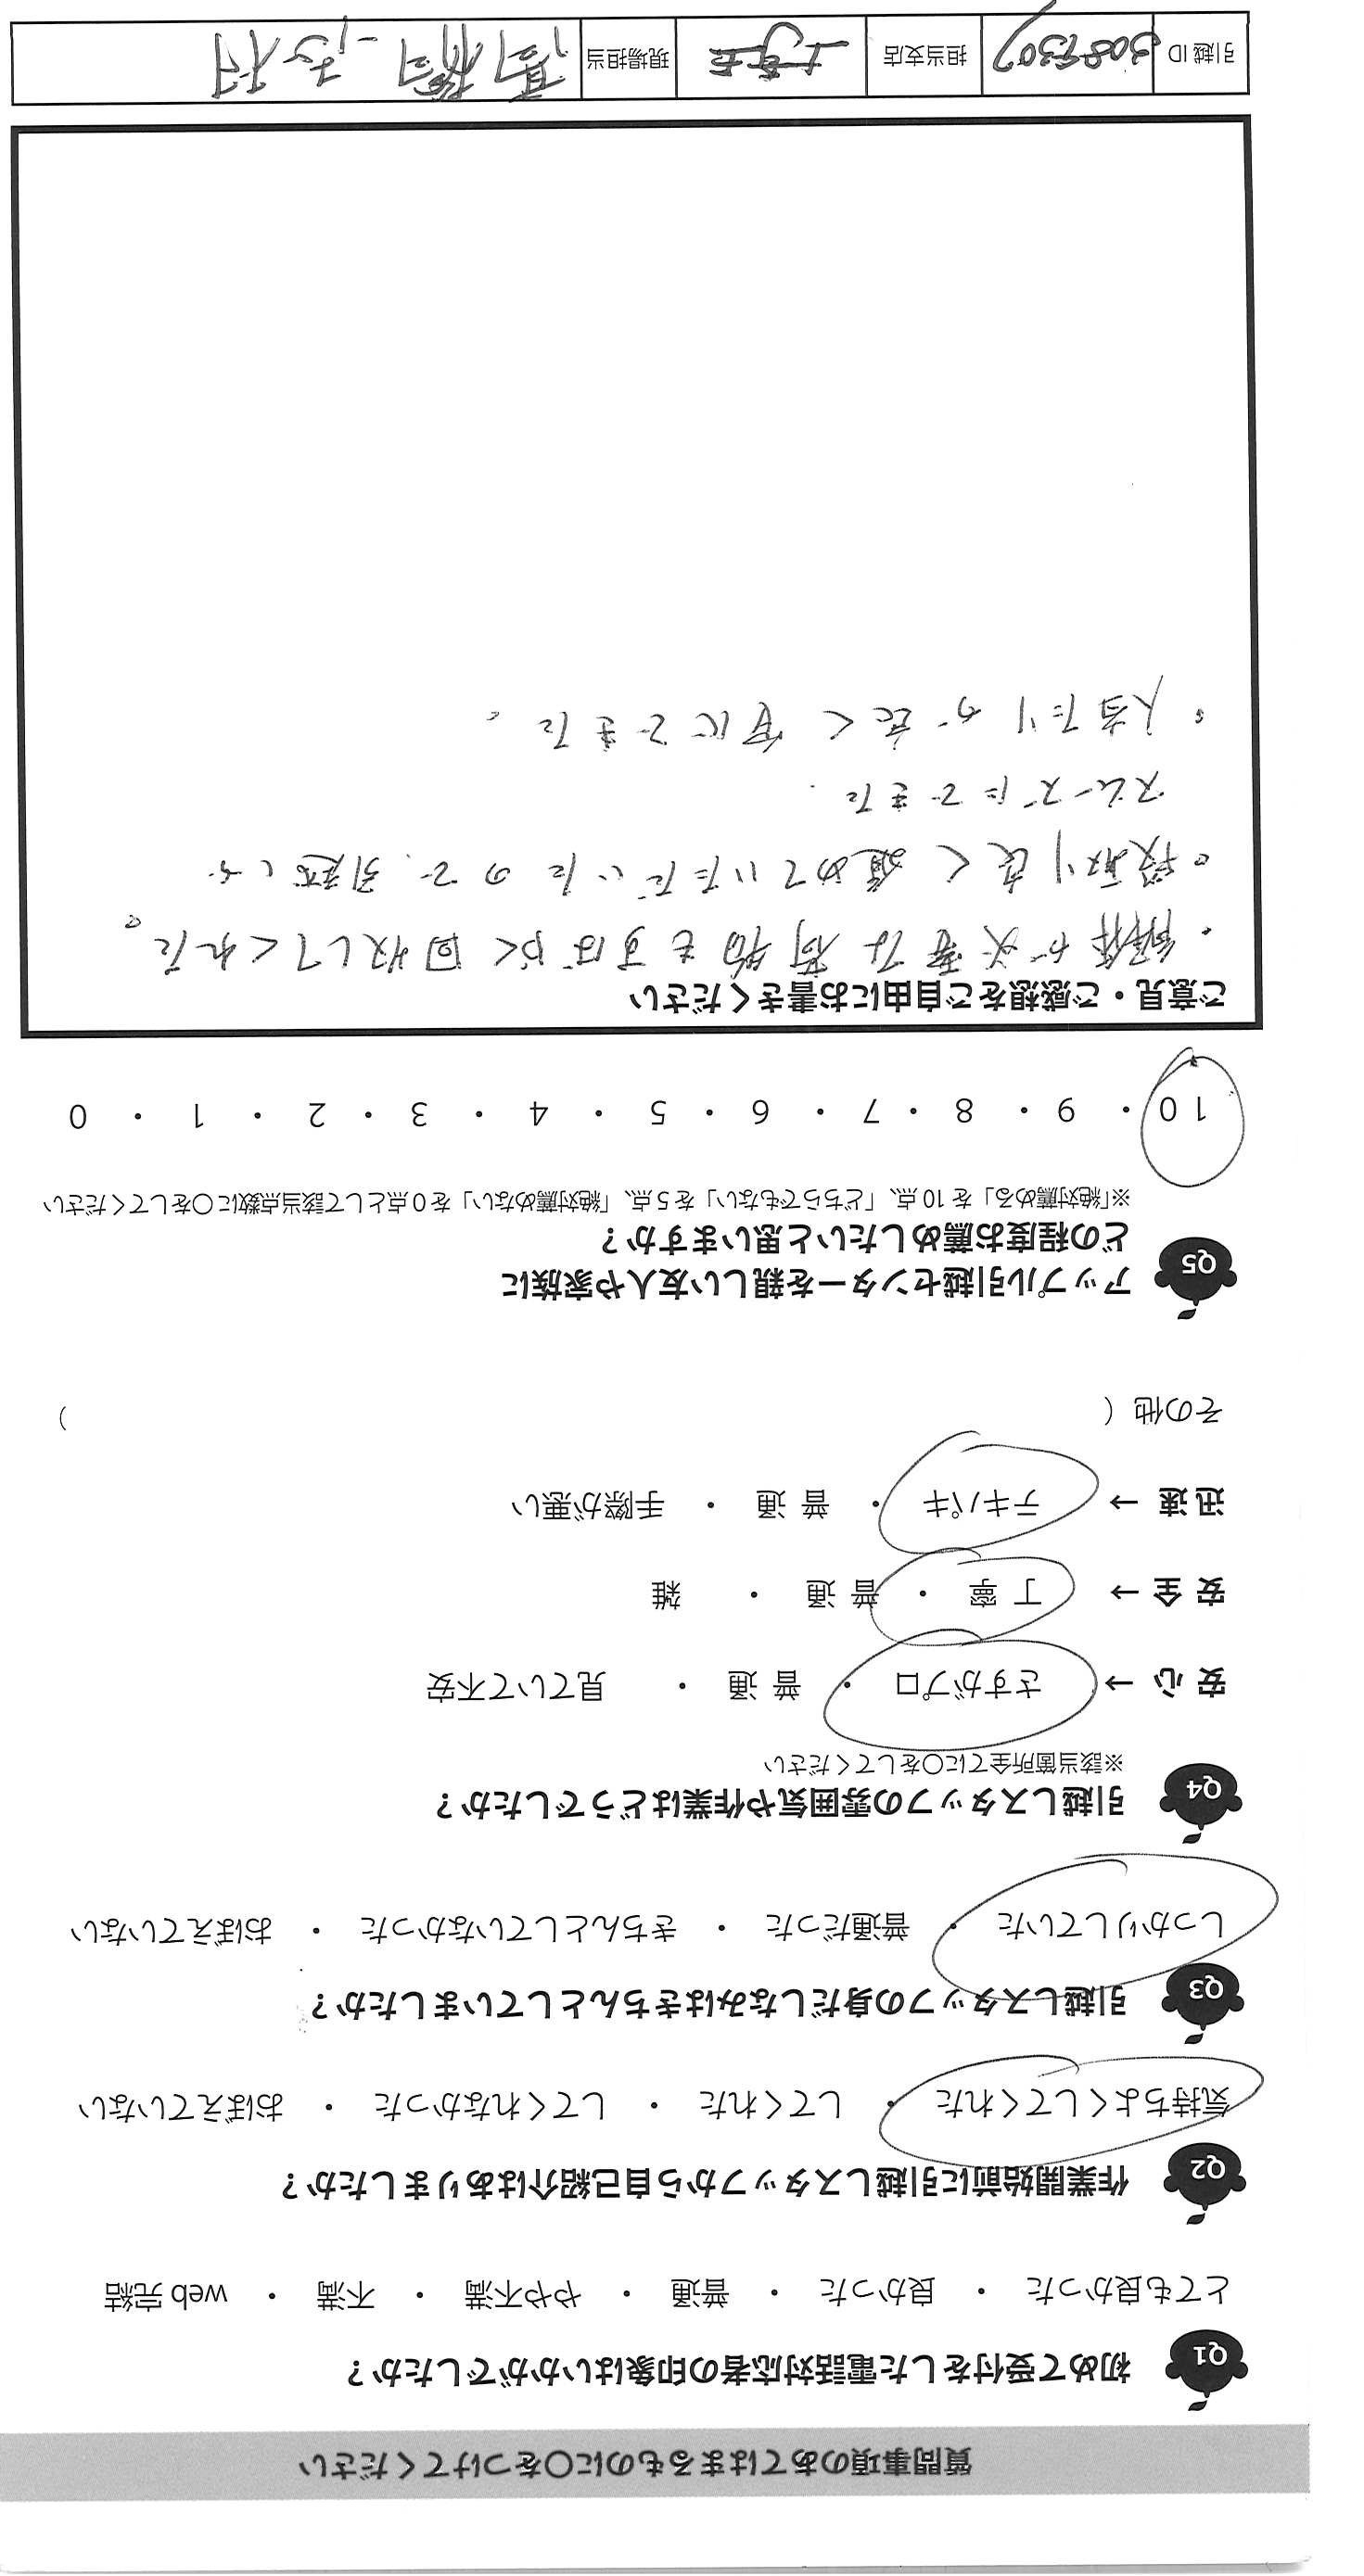 質問事項のあてはまるものに○をつけてください
Q1 初めて受付をした電話対応者の印象はいかがでしたか？
とても良かった ・ 良かった ・ 普通 ・ やや不満 ・ 不満 ・ web 完結
Q2 作業開始前に引越しスタッフから自己紹介はありましたか？
気持ちよくしてくれた ・ してくれた ・ してくれなかった ・ おぼえていない
Q3 引越しスタッフの身だしなみはきちんとしていましたか？
しっかりしていた ・ 普通だった ・ きちんとしていなかった ・ おぼえていない
Q4 引越しスタッフの雰囲気や作業はどうでしたか？
※該当箇所全てに○をしてください
安 心 → さすがプロ ・ 普 通 ・ 見ていて不安
安 全 → 丁 寧 ・ 普 通 ・ 雑
迅 速 → テキパキ ・ 普 通 ・ 手際が悪い
その他 （ ）
Q5 アップル引越センターを親しい友人や家族に
どの程度お薦めしたいと思いますか？
※「絶対薦める」を 10 点、「どちらでもない」を 5 点、「絶対薦めない」を 0 点として該当点数に○をしてください
10 ・ 9 ・ 8 ・ 7 ・ 6 ・ 5 ・ 4 ・ 3 ・ 2 ・ 1 ・ 0
ご意見・ご感想をご自由にお書きください
・解体が必要な荷物もすばやく回収してくれた。
・段取り良く進めていただいたので、引越しが
スムーズにできた.
・人当たりが良く 安心できた。
引越 ID 担当支店 現場担当 高橋